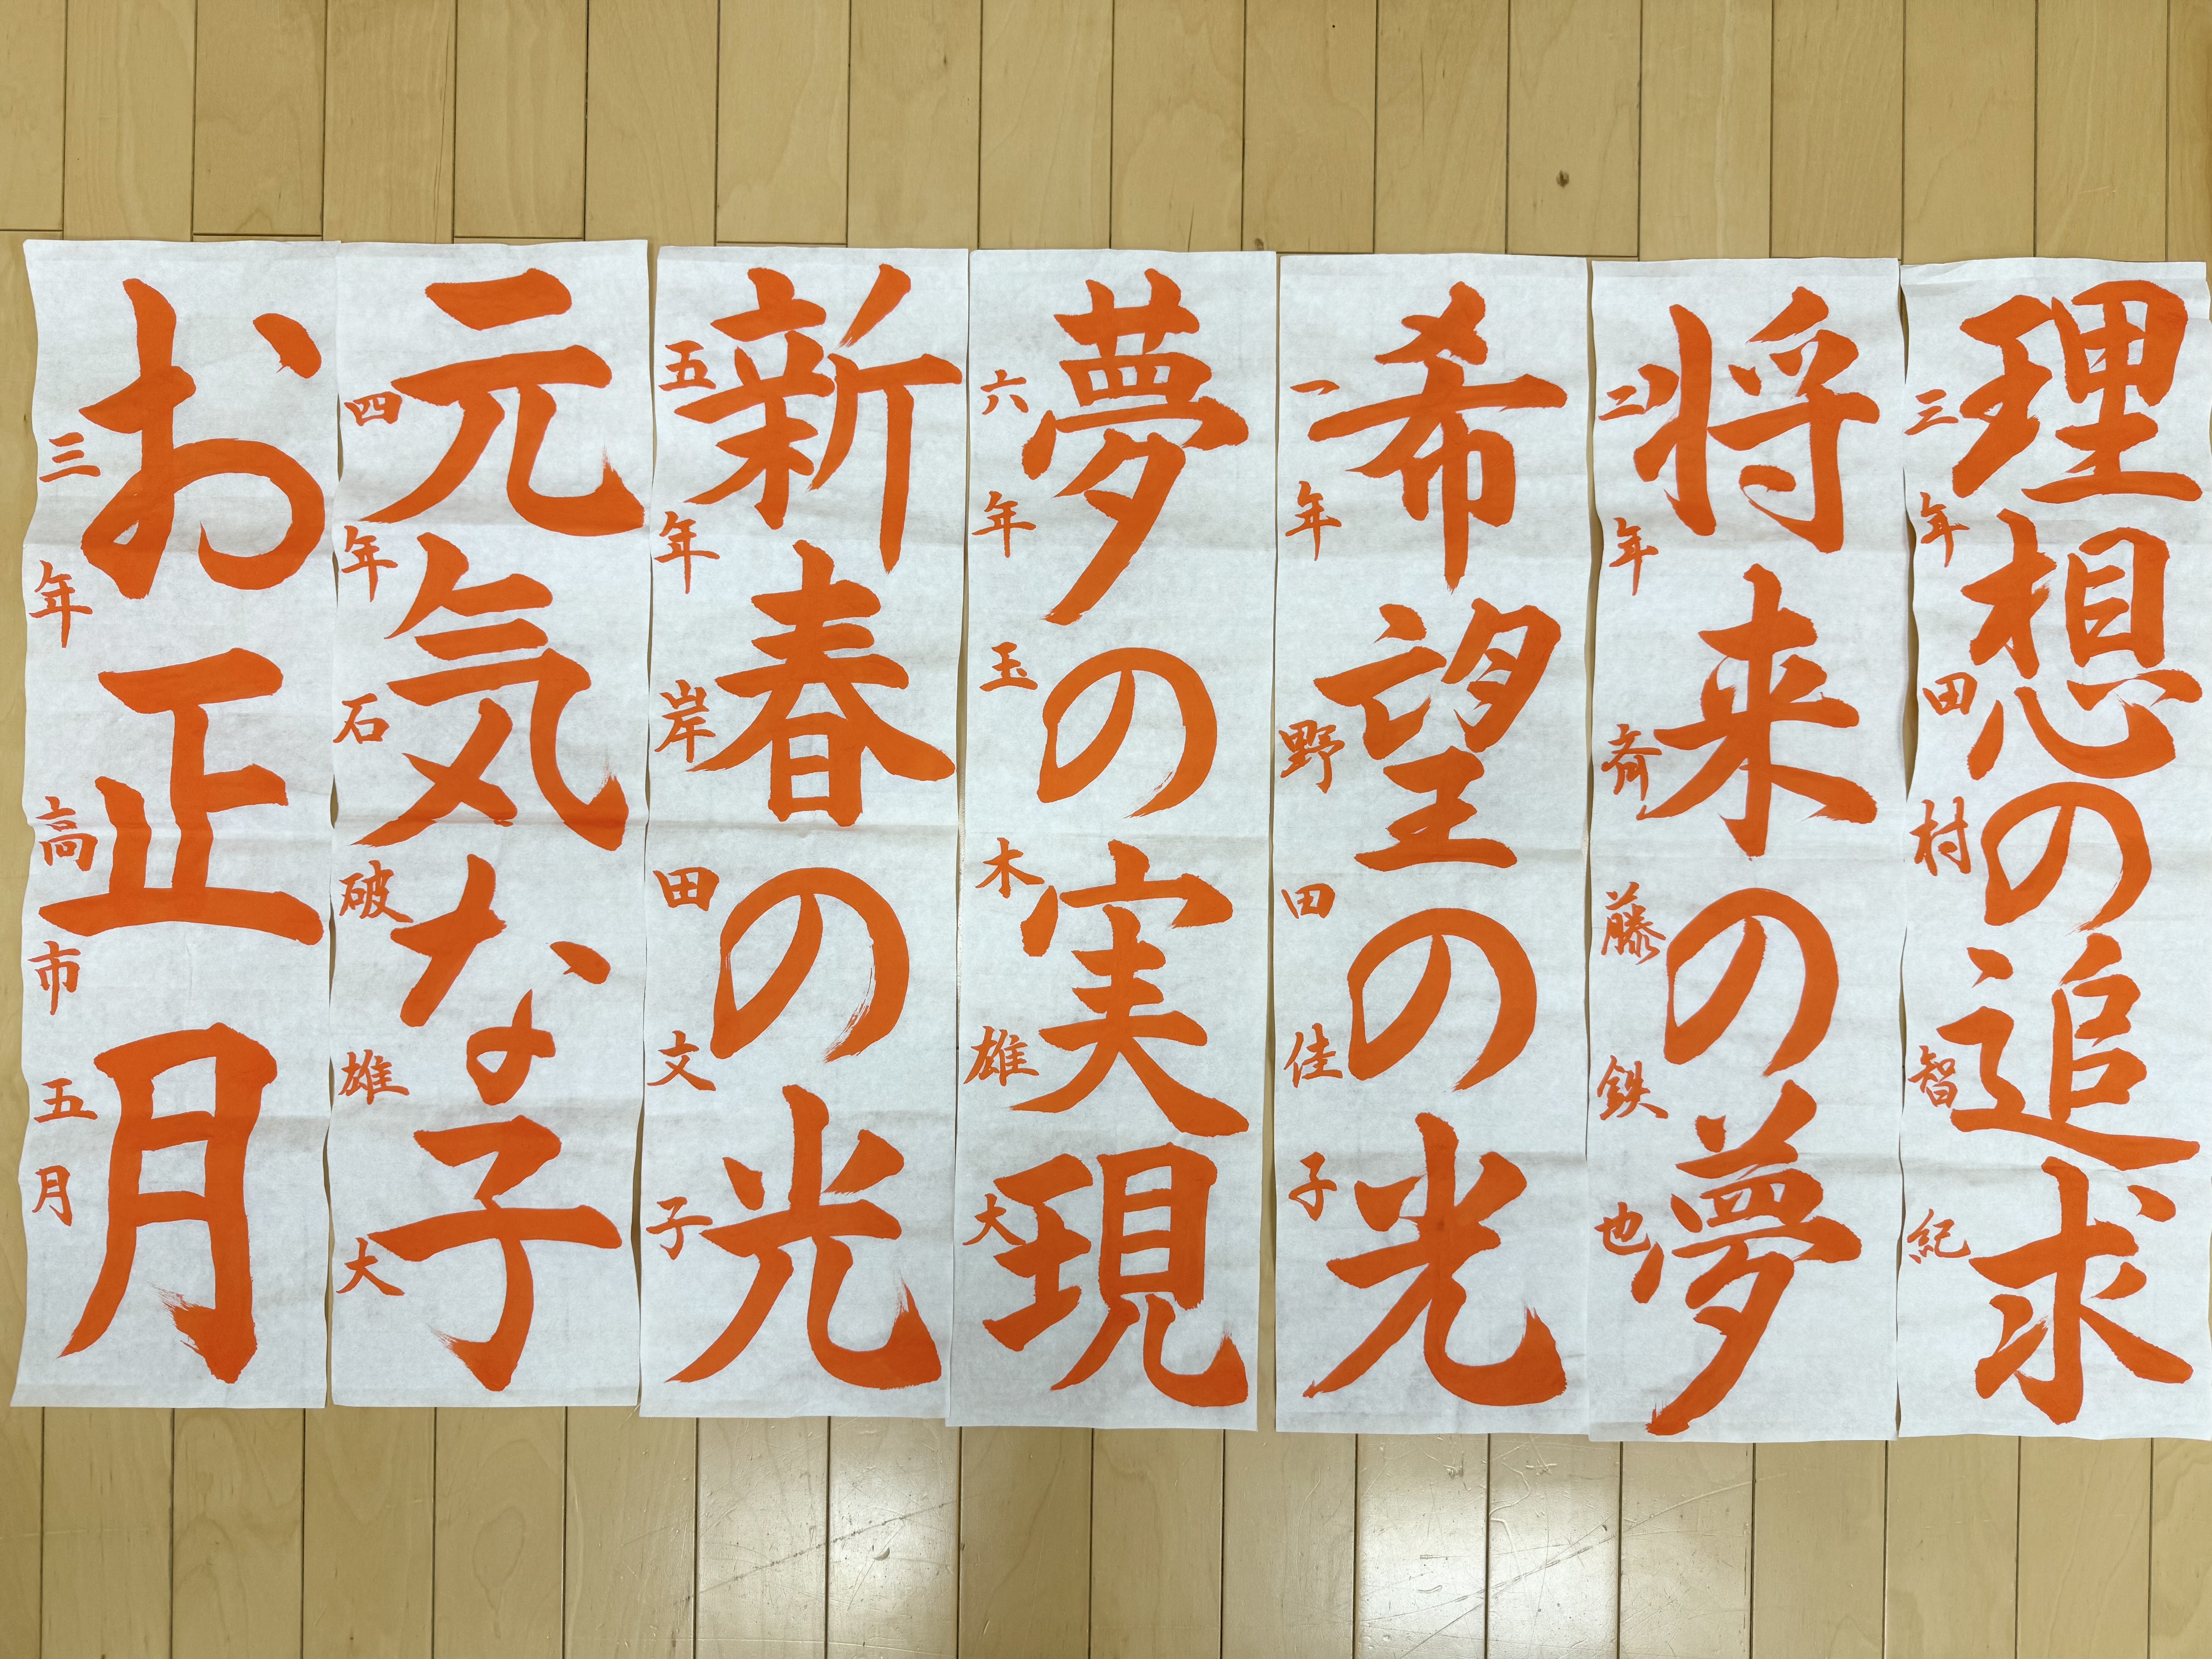 理想の追求
三年 田村智紀
将来の夢
二年 斉藤鉄也
希望の光
一年 野田佳子
夢の実現
六年 玉木雄大
新春の光
五年 岸田文子
元気な子
四年 石破雄大
お正月
三年 高市五月